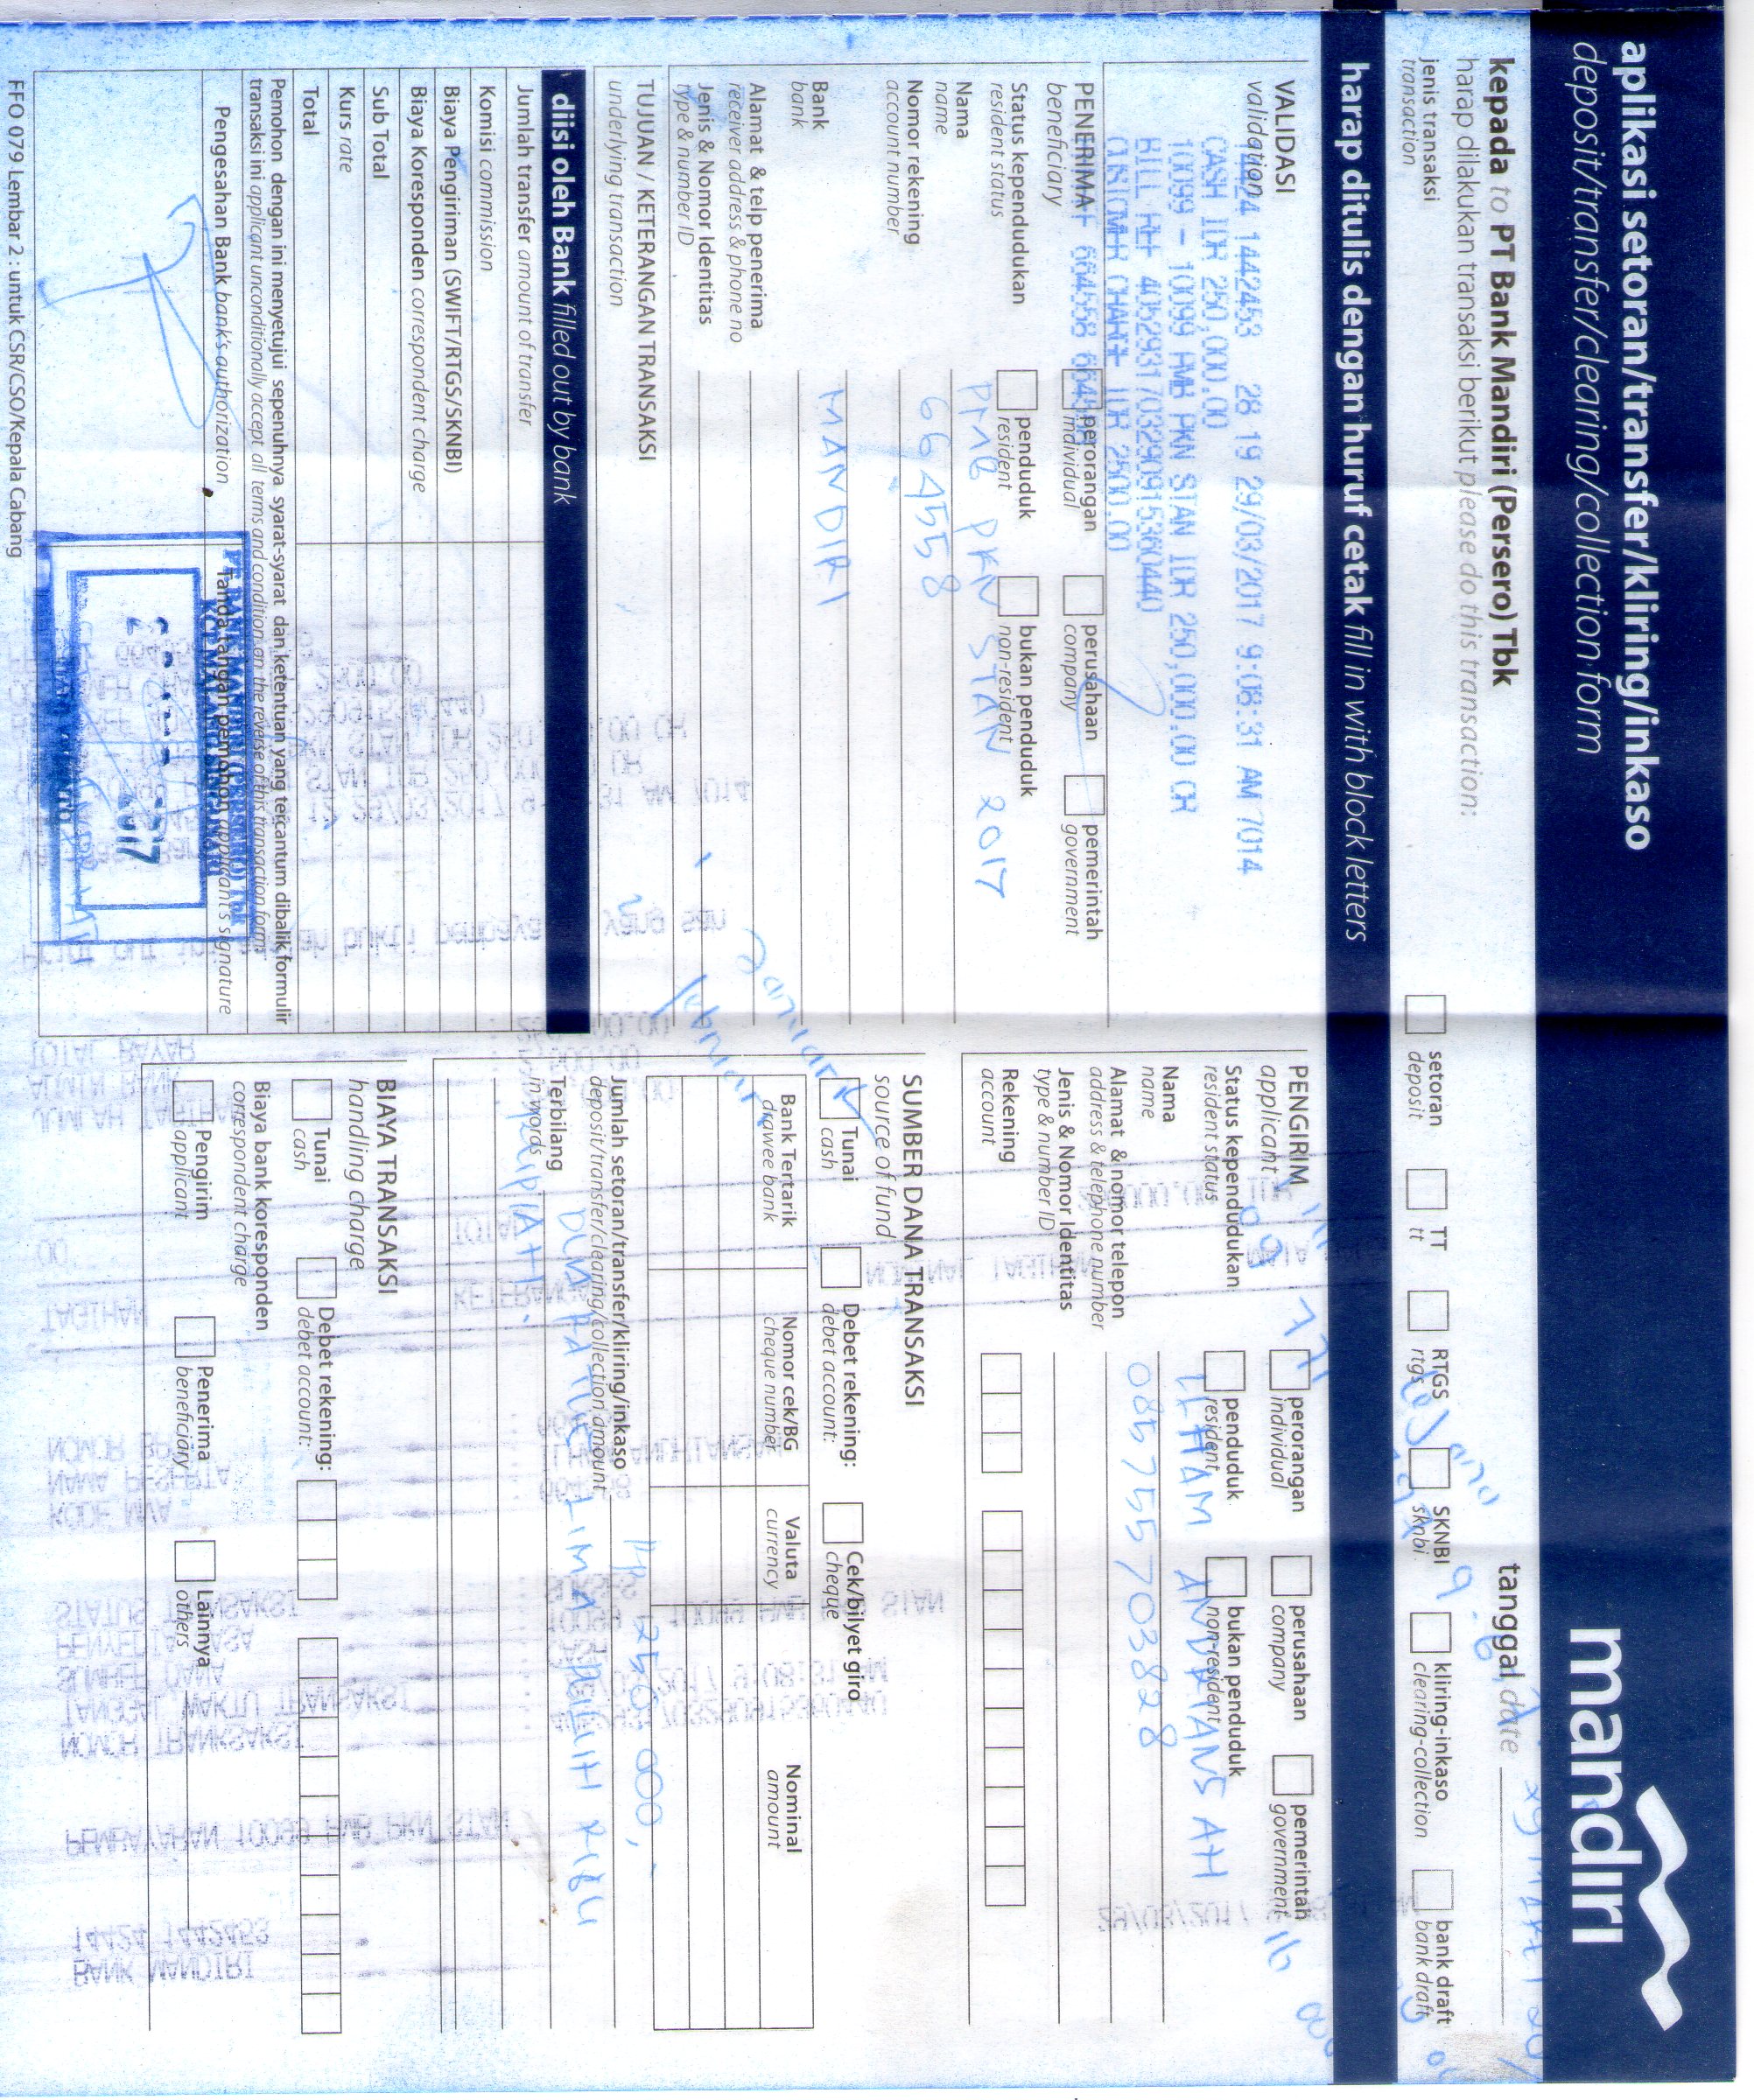 aplikasi setoran/transfer/kliring/inkaso
deposit/transfer/clearing/collection form
mandiri
kepada to PT Bank Mandiri (Persero) Tbk
tanggal date 29 MARET 201
harap dilakukan transaksi berikut please do this transaction:
jenis transaksi
transaction
setoran
deposit
TT
tt
RTGS
rtgs
SKNBI
sknbi
kliring-inkaso
clearing-collection
bank draft
bank draft
harap ditulis dengan huruf cetak fill in with block letters
VALIDASI
validation
14424 1442453 28 19 29/03/2017 9:08:31 AM 7014
CASH IDR 250,000.00
10099 - 10099 PMB PKN STAN IDR 250,000.00 CR
BILL REF 4052931703290915360440
CUSTOMER CHARGE IDR 2500.00
664558
PENERIMA
beneficiary
perorangan
individual
perusahaan
company
pemerintah
government
Status kependudukan
resident status
penduduk
resident
bukan penduduk
non-resident
Nama
name
PMB PKN STAN 2017
Nomor rekening
account number
664558
Bank
bank
MANDIRI
Alamat & telp penerima
receiver address & phone no
Jenis & Nomor Identitas
type & number ID
TUJUAN / KETERANGAN TRANSAKSI
underlying transaction
diisi oleh Bank filled out by bank
Jumlah transfer amount of transfer
Komisi commission
Biaya Pengiriman (SWIFT/RTGS/SKNBI)
Biaya Koresponden correspondent charge
Sub Total
Kurs rate
Total
Pemohon dengan ini menyetujui sepenuhnya syarat-syarat dan ketentuan yang tercantum dibalik formulir
transaksi ini applicant unconditionally accept all terms and condition on the reverse of this transaction form
Pengesahan Bank bank's authorization
Tanda tangan pemohon applicant's signature
PT BANK MANDIRI (PERSERO) Tbk
KCP MALANG SINGOSARI
2017
FFO 079 Lembar 2 : untuk CSR/CSO/Kepala Cabang
PENGIRIM
applicant
perorangan
individual
perusahaan
company
pemerintah
government
Status kependudukan
resident status
penduduk
resident
bukan penduduk
non-resident
Nama
name
ILHAM ANDRIANSAH
Alamat & nomor telepon
address & telephone number
085755703828
Jenis & Nomor Identitas
type & number ID
Rekening
account
SUMBER DANA TRANSAKSI
source of fund
Tunai
cash
Debet rekening:
debet account:
Cek/bilyet giro
cheque
Bank Tertarik
drawee bank
Nomor cek/BG
cheque number
Valuta
currency
Nominal
amount
Januari
februari
Jumlah setoran/transfer/kliring/inkaso
deposit/transfer/clearing/collection amount
Rp 250 000,-
Terbilang
in words
DUA RATUS LIMA PULUH RIBU
RUPIAH.
BIAYA TRANSAKSI
handling charge
Tunai
cash
Debet rekening:
debet account:
Biaya bank koresponden
correspondent charge
Pengirim
applicant
Penerima
beneficiary
Lainnya
others